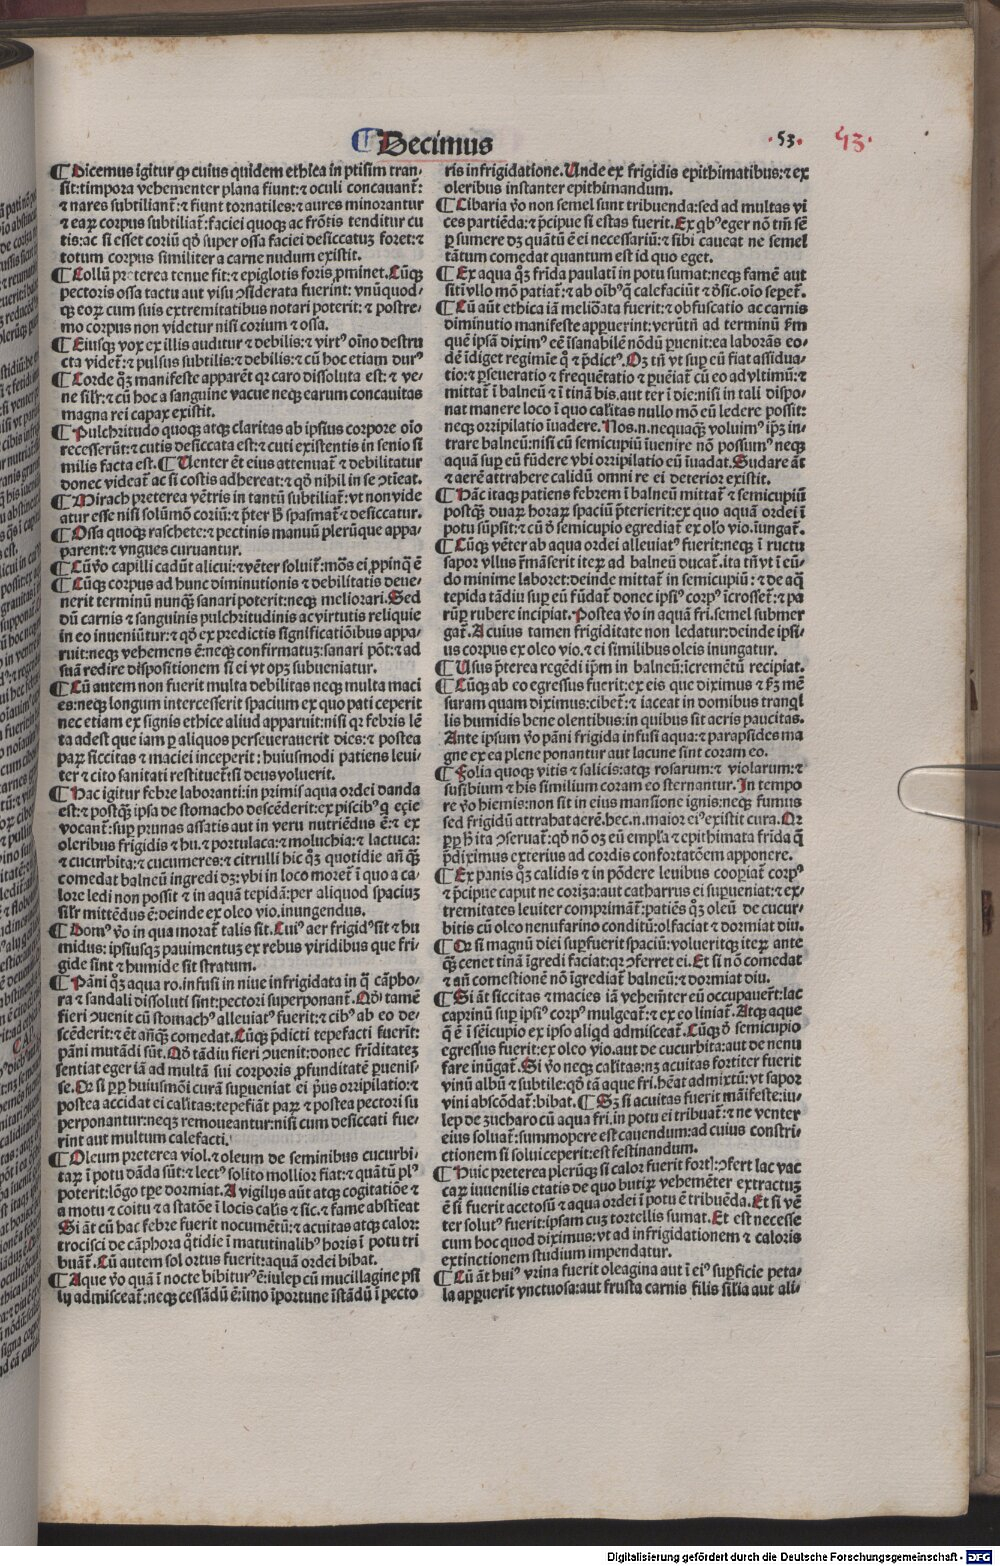 Decimus
·53· 53·
¶ Dicemus igitur qꝫ cuius quidem ethica in ptisim tran-
sit: timpora vehementer plana fiunt: ⁊ oculi concauant᷑:
⁊ nares subtiliant᷑: ⁊ fiunt tornatiles: ⁊ aures minorantur
⁊ eaꝝ corpus subtiliat᷑: faciei quoqꝫ ac frōtis tenditur cu
tis: ac si esset coriū qd̓ super ossa faciei desiccatuꝫ foret: ⁊
totum corpus similiter a carne nudum existit.
¶ Collū preterea tenue fit: ⁊ epiglotis foris ꝓminet. Cūqꝫ
pectoris ossa tactu aut visu ↄsiderata fuerint: vnūquod-
qꝫ eoꝝ cum suis extremitatibus notari poterit: ⁊ postre-
mo corpus non videtur nisi corium ⁊ ossa.
¶ Eiusqꝫ vox ex illis auditur ⁊ debilis: ⁊ virtꝰ oīno destru
cta videt᷑: ⁊ pulsus subtilis: ⁊ debilis: ⁊ cū hoc etiam durꝰ
¶ Corde qꝫ manifeste apparēt qꝛ caro dissoluta est: ⁊ ve-
ne silr̄: ⁊ cū hoc a sanguine vacue neqꝫ earum concauitas
magna rei capax existit.
¶ Pulchritudo quoqꝫ atqꝫ claritas ab ipsius corpore oīo
recesserūt: ⁊ cutis desiccata est: ⁊ cuti existentis in senio si
milis facta est. ¶ Uenter ēt eius attenuat᷑ ⁊ debilitatur
donec videat᷑ ac si costis adhereat: ⁊ qd̓ nihil in se ↄtineat.
¶ Mirach preterea vētris in tantū subtiliat᷑: vt non vide
atur esse nisi solūmō coriū: ⁊ p̄ter ꝧ spasmat᷑ ⁊ desiccatur.
¶ Ossa quoqꝫ raschete: ⁊ pectinis manuū plerūque appa-
parent: ⁊ vngues curuantur.
¶ Cū v̄o capilli cadūt alicui: ⁊ vēter soluit᷑: mōs ei ꝓpinqꝰ ē
¶ Cūqꝫ corpus ad hunc diminutionis ⁊ debilitatis deue-
nerit terminū nunqꝫ sanari poterit: neqꝫ meliorari. Sed
dū carnis ⁊ sanguinis pulchritudinis ac virtutis reliquie
in eo inueniūtur: ⁊ qd̓ ex predictis significatiōibus appa-
ruit: neqꝫ vehemens ē: neqꝫ confirmatuꝫ: sanari pōt: ⁊ ad
suā redire dispositionem si ei vt opꝫ subueniatur.
¶ Cū autem non fuerit multa debilitas neqꝫ multa maci
es: neqꝫ longum intercesserit spacium ex quo pati ceperit
nec etiam ex signis ethice aliud apparuit: nisi qꝛ febris lē
ta adest que iam ꝑ aliquos perseuerauerit dies: ⁊ postea
paꝝ siccitas ⁊ maciei inceperit: huiusmodi patiens leui-
ter ⁊ cito sanitati restituet᷑: si deus voluerit.
¶ Hac igitur febre laboranti: in primis aqua ordei danda
est: ⁊ postqꝫ ipsa de stomacho descēderit: ex piscibꝰ q̄ eçie
vocant᷑: suꝑ prunas assatis aut in veru nutriēdus ē: ⁊ ex
oleribus frigidis ⁊ hu. ⁊ portulaca: ⁊ moluchia: ⁊ lactuca:
⁊ cucurbita: ⁊ cucumeres: ⁊ citrulli hic qꝫ quotidie añ qꝫ
comedat balneū ingredi dꝫ: vbi in loco moret᷑ ī quo a ca-
lore ledi non possit ⁊ in aquā tepidā: per aliquod spaciuꝫ
silr̄ mittēdus ē: deinde ex oleo vio. inungendus.
¶ Domꝰ v̄o in qua morat᷑ talis sit. Cuiꝰ aer frigidꝰ sit ⁊ hu
midus: ipsiusqꝫ pauimentuꝫ ex rebus viridibus que fri-
gide sint ⁊ humide sit stratum.
¶ Pāni qꝫ aqua ro. infusi in niue infrigidata in q̄ cāpho-
ra ⁊ sandali dissoluti sint: pectori superponant᷑. Qd̓ tamē
fieri ↄuenit cū stomachꝰ alleuiatꝰ fuerit: ⁊ cibꝰ ab eo de-
scēderit: ⁊ ēt añqꝫ comedat. Cūqꝫ p̄dicti tepefacti fuerīt:
pāni mutādi sūt. Qd̓ tādiu fieri ↄuenit: donec fr̄iditateꝫ
sentiat eger iā ad multā sui corporis ꝓfunditatē ꝑuenis-
se. Qꝛ si ꝓꝑ huiusmōi curā suꝑueniat ei pꝰus orripilatio: ⁊
postea accidat ei calitas: tepefiāt paꝝ ⁊ postea pectori su
perponantur: neqꝫ remoueantur: nisi cum desiccati fue-
rint aut multum calefacti.
¶ Oleum preterea viol. ⁊ oleum de seminibus cucurbi-
taꝝ ī potu dāda sūt: ⁊ lectꝰ solito mollior fiat: ⁊ quātū plꝰ
poterit: lōgo tꝑe dormiat. A vigilys aūt atqꝫ cogitatiōe ⁊
a motu ⁊ coitu ⁊ a statōe ī locis calis ⁊ sic. ⁊ fame abstīeat
Si āt cū hac febre fuerit nocumētū: ⁊ acuitas atqꝫ calor:
trocisci de cāphora q̄tidie ī matutinalibꝰ horis ī potu tri
buāt᷑. Cū autem sol ortus fuerit: aquā ordei bibat.
¶ Aque v̄o quā ī nocte bibiturꝰ ē: iulep cū mucillagine psi
lij admisceat᷑: neqꝫ cessādū ē: imo īportune īstādū ī pecto
ris infrigidatione. Unde ex frigidis epithimatibus: ⁊ ex
oleribus instanter epithimandum.
¶ Cibaria v̄o non semel sunt tribuenda: sed ad multas vi
ces partiēda: ⁊ p̄cipue si estas fuerit. Ex qbꝰ eger nō tm̄ sē
ꝑ sumere dꝫ quātū ē ei necessariū: ⁊ sibi caueat ne semel
tātum comedat quantum est id quo eget.
¶ Ex aqua qꝫ frīda paulatī in potu sumat: neqꝫ famē aut
sitī vllo mō patiat᷑: ⁊ ab oībꝰ q̄ calefaciūt ⁊ d̓sic. oīo seꝑet᷑.
¶ Cū aūt ethica iā meliōata fuerit: ⁊ obfuscatio ac carnis
diminutio manifeste apꝑuerint: verūtn̄ ad terminū ẜm
quē ipsā diximꝰ eē īsanabilē nōdū ꝑuenit: ea laborās eo-
dē īdiget regimīe q̄ ⁊ p̄dictꝰ. Oꝫ tn̄ vt suꝑ eū fiat assidua-
tio: ⁊ ꝑseueratio ⁊ frequētatio ⁊ ꝑuēiat᷑ cū eo ad vltimū: ⁊
mittat᷑ ī balneū ⁊ ī tinā bis. aut ter ī die: nisi in tali dispo-
nat manere loco ī quo calitas nullo mō eū ledere possit:
neqꝫ orripilatio īuadere. Nos. n. nequaqꝫ voluimꝰ ip̄ꝫ in-
trare balneū: nisi cū semicupiū īuenire nō possumꝰ neqꝫ
aquā suꝑ eū fūdere vbi orripilatio eū īuadat. Sudare āt
⁊ aerē attrahere calidū omni re ei deterior existit.
¶ Hāc itaqꝫ patiens febrem ī balneū mittat᷑ ⁊ semicupiū
postqꝫ duaꝝ horaꝝ spaciū p̄terierit: ex quo aquā ordei ī
potu sūpsit: ⁊ cū d̓ semicupio egrediat᷑ ex olo vio. īungat᷑.
¶ Cūqꝫ vēter ab aqua ordei alleuiatꝰ fuerit: neqꝫ ī ructu
sapor vllus r̄māserit iteꝝ ad balneū ducat᷑. ita tn̄ vt ī eū-
do minime laboret: deinde mittat᷑ in semicupiū: ⁊ de aq̄
tepida tādiu suꝑ eū fūdat᷑ donec ipsiꝰ corpꝰ īcrosset᷑: ⁊ pa
rūꝑ rubere incipiat. Postea v̄o in aquā fri. semel submer
gat᷑. A cuius tamen frigiditate non ledatur: deinde ipsi-
us corpus ex oleo vio. ⁊ ei similibus oleis inungatur.
¶ Usus p̄terea regēdi ip̄m in balneū: icremētū recipiat.
¶ Cūqꝫ ab eo egressus fuerit: ex eis que diximus ⁊ ẜꝫ mē
suram quam diximus: cibet᷑: ⁊ iaceat in domibus tranql
lis humidis bene olentibus: in quibus sit aeris paucitas.
Ante ipsum v̄o pāni frigida infusi aqua: ⁊ parapsides ma
gne ex ea plene ponantur aut lacune sint coram eo.
¶ Folia quoqꝫ vitis ⁊ salicis: atqꝫ rosarum: ⁊ violarum: ⁊
susibium ⁊ his similium coram eo sternantur. In tempo
re v̄o hiemis: non sit in eius mansione ignis: neqꝫ fumus
sed frigidū attrahat aerē. hec. n. maior eiꝰ existit cura. Qꝛ
ꝓꝑ ꝧ ita ↄseruat᷑: qd̓ nō oꝫ eū empl̄a ⁊ epithimata fr̄ida q̄
p̄diximus exterius ad cordis confortatōem apponere.
¶ Ex panis qꝫ calidis ⁊ in pōdere leuibus coopiat᷑ corpꝰ
⁊ p̄cipue caput ne coriza: aut catharrus ei suꝑueniat: ⁊ ex-
tremitates leuiter comprimāt᷑: patiēs qꝫ oleū de cucur-
bitis cū oleo nenufarino conditū: olfaciat ⁊ dormiat diu.
¶ Qꝛ si magnū diei suꝑfuerit spaciū: volueritqꝫ iteꝝ ante
qꝫ cenet tinā īgredi faciat: qꝛ ↄferret ei. Et si nō comedat
⁊ añ comestionē nō īgrediat᷑ balneū: ⁊ dormiat diu.
¶ Si āt siccitas ⁊ macies iā vehemīter eū occupauer̄t: lac
caprinū suꝑ ipsiꝰ corpꝰ mulgeat᷑: ⁊ ex eo liniat᷑. Atqꝫ aque
q̄ ē ī sēicupio ex ipso aliqd admisceat᷑. Cūqꝫ d̓ semicupio
egressus fuerit: ex oleo vio. aut de cucurbita: aut de nenu
fare inūgat᷑. Si v̄o neqꝫ calitas: nꝫ acuitas fortiter fuerit
vinū albū ⁊ subtile: qd̓ tā aque fri. hēat admixtū: vt sapor
vini abscōdat᷑: bibat. ¶ Sꝫ si acuitas fuerit māifeste: iu-
lep de zucharo cū aqua fri. in potu ei tribuat᷑: ⁊ ne venter
eius soluat᷑: summopere est cauendum: ad cuius constri-
ctionem si soluiceperit: est festinandum.
¶ Huic preterea plerūqꝫ si calor fuerit fort]: ↄfert lac vac
caꝝ iuuenilis etatis de quo butiꝝ vehemēter extractuꝫ
ē si fuerit acetosū ⁊ aqua ordei ī potu ē tribuēda. Et si vē
ter solutꝰ fuerit: ipsam cuꝫ tortellis sumat. Et est necesse
cum hoc quod diximus: vt ad infrigidationem ⁊ caloris
extinctionem studium impendatur.
¶ Cū āt huiꝰ vrina fuerit oleagina aut ī eiꝰ suꝑficie peta-
la apꝑuerīt vnctuosa: aut frusta carnis filis similia aut ali-
Digitalisierung gefördert durch die Deutsche Forschungsgemeinschaft - DFG